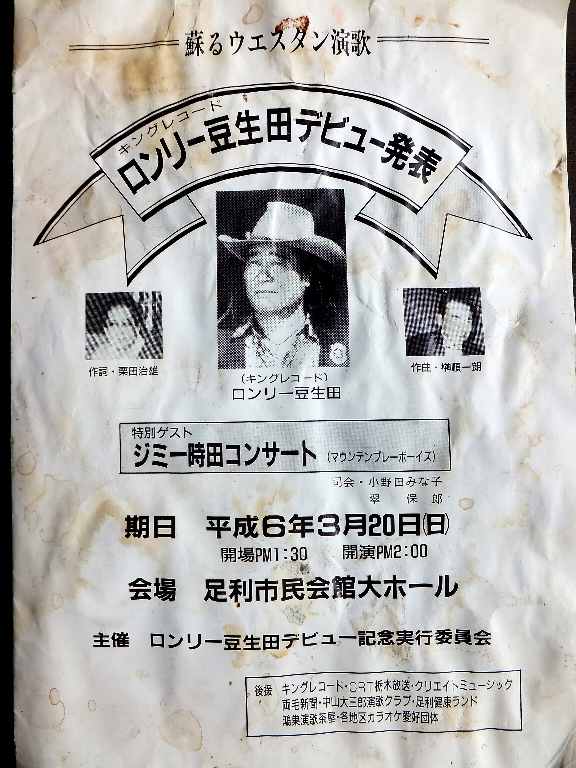 蘇るウエスタン演歌
キングレコード
ロンリー豆生田デビュー発表
作詞・栗田治雄
(キングレコード)
ロンリー豆生田
作曲・榊順一朗
特別ゲスト
ジミー時田コンサート (マウンテンプレーボーイズ)
司会・小野田みな子
翠 保郎
期日 平成6年3月20日(日)
開場PM1:30 開演PM2:00
会場 足利市民会館大ホール
主催 ロンリー豆生田デビュー記念実行委員会
後援 キングレコード・CRT栃木放送・クリエイトミュージック
両毛新聞・中山大三郎演歌クラブ・足利健康ランド
演歌茶屋・各地区カラオケ愛好団体